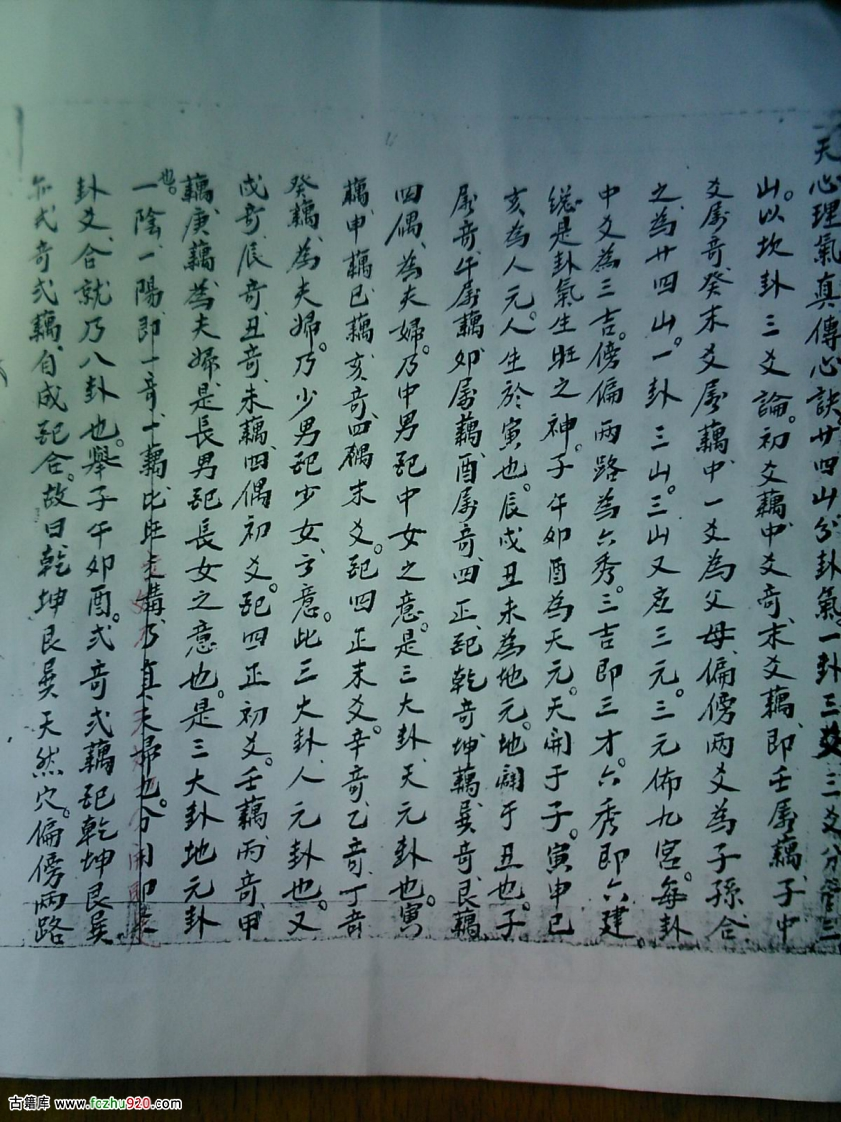 天心理氣真傳心訣廿四山分卦氣一卦三爻三爻分管三
山。以坎卦三爻論。初爻藕、中爻奇、末爻藕、即壬屬藕、子中
爻屬奇、癸末爻屬藕、中一爻為父母、偏傍兩爻為子孫、合
之為廿四山。一卦三山。三山又庄三元。三元佈九宮。每卦
中爻為三吉。傍偏兩路為六秀。三吉即三才。六秀即六建
總是卦氣生旺之神。子午卯酉為天元。天開于子。寅申巳
亥為人元。人生於寅也。辰戌丑未為地元。地闢于丑也。子
屬奇、午屬藕、卯屬藕、酉屬奇、四正、配乾奇、坤藕、巽奇、艮藕
四偶、為夫婦。乃中男配中女之意。是三大卦、天元卦也。寅
藕、申藕、巳藕、亥奇、四隅末爻。配四正末爻。辛奇、乙奇、丁奇
癸藕、為夫婦。乃少男配少女、之意。此三大卦、人元卦也。又
戌奇、辰奇、丑奇、未藕、四偶初爻。配四正初爻。壬藕、丙奇、甲
藕、庚藕、為夫婦、是長男配長女之意也。是三大卦地元卦
也。
一陰、一陽、即一奇、一藕、比旺交媾、乃真夫婦也。分用即
卦爻、合就乃八卦也。舉子午卯酉。式奇式藕、配乾坤艮巽
亦式奇式藕、自成配合。故曰乾坤艮巽天然穴。偏傍兩路
古籍库 www.fczhu920.com